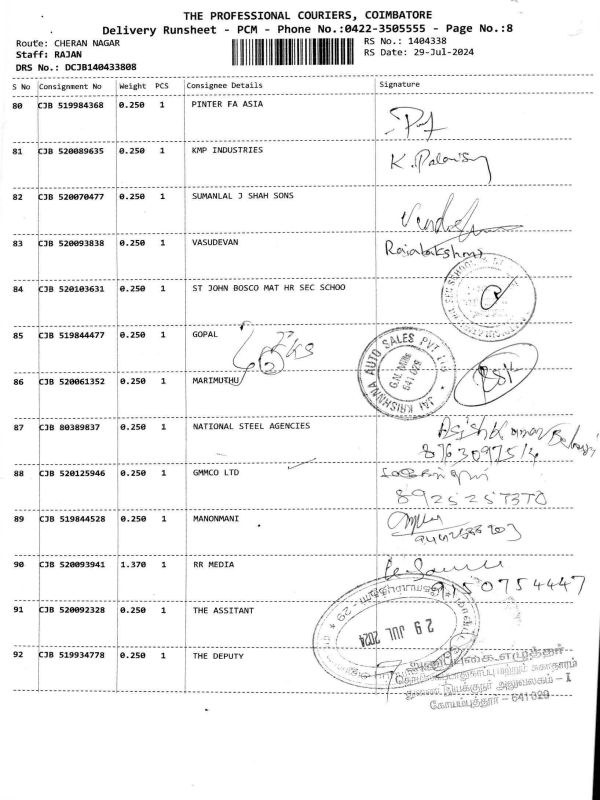 THE PROFESSIONAL COURIERS, COIMBATORE
Delivery Runsheet - PCM - Phone No.:0422-3505555 - Page No.:8
Route: CHERAN NAGAR
Staff: RAJAN
DRS No.: DCJB140433808
RS No.: 1404338
RS Date: 29-Jul-2024
S No Consignment No Weight PCS Consignee Details Signature
80 CJB 519984368 0.250 1 PINTER FA ASIA
81 CJB 520089635 0.250 1 KMP INDUSTRIES
K. Palanisy
82 CJB 520070477 0.250 1 SUMANLAL J SHAH SONS
83 CJB 520093838 0.250 1 VASUDEVAN
Rajalakshmi
84 CJB 520103631 0.250 1 ST JOHN BOSCO MAT HR SEC SCHOO
85 CJB 519844477 0.250 1 GOPAL
JAI KRISHNNA AUTO SALES PVT LTD
G.N. Mills
641 029
86 CJB 520061352 0.250 1 MARIMUTHU
87 CJB 80389837 0.250 1 NATIONAL STEEL AGENCIES
8763097514
88 CJB 520125946 0.250 1 GMMCO LTD
89 CJB 519844528 0.250 1 MANONMANI
90 CJB 520093941 1.370 1 RR MEDIA
9150754447
91 CJB 520092328 0.250 1 THE ASSITANT
29 JUL 2024
92 CJB 519934778 0.250 1 THE DEPUTY
தொழிலக பாதுகாப்பு மற்றும் சுகாதாரம்
இணை இயக்குநர் அலுவலகம் - I
கோயம்புத்தூர் - 641 029